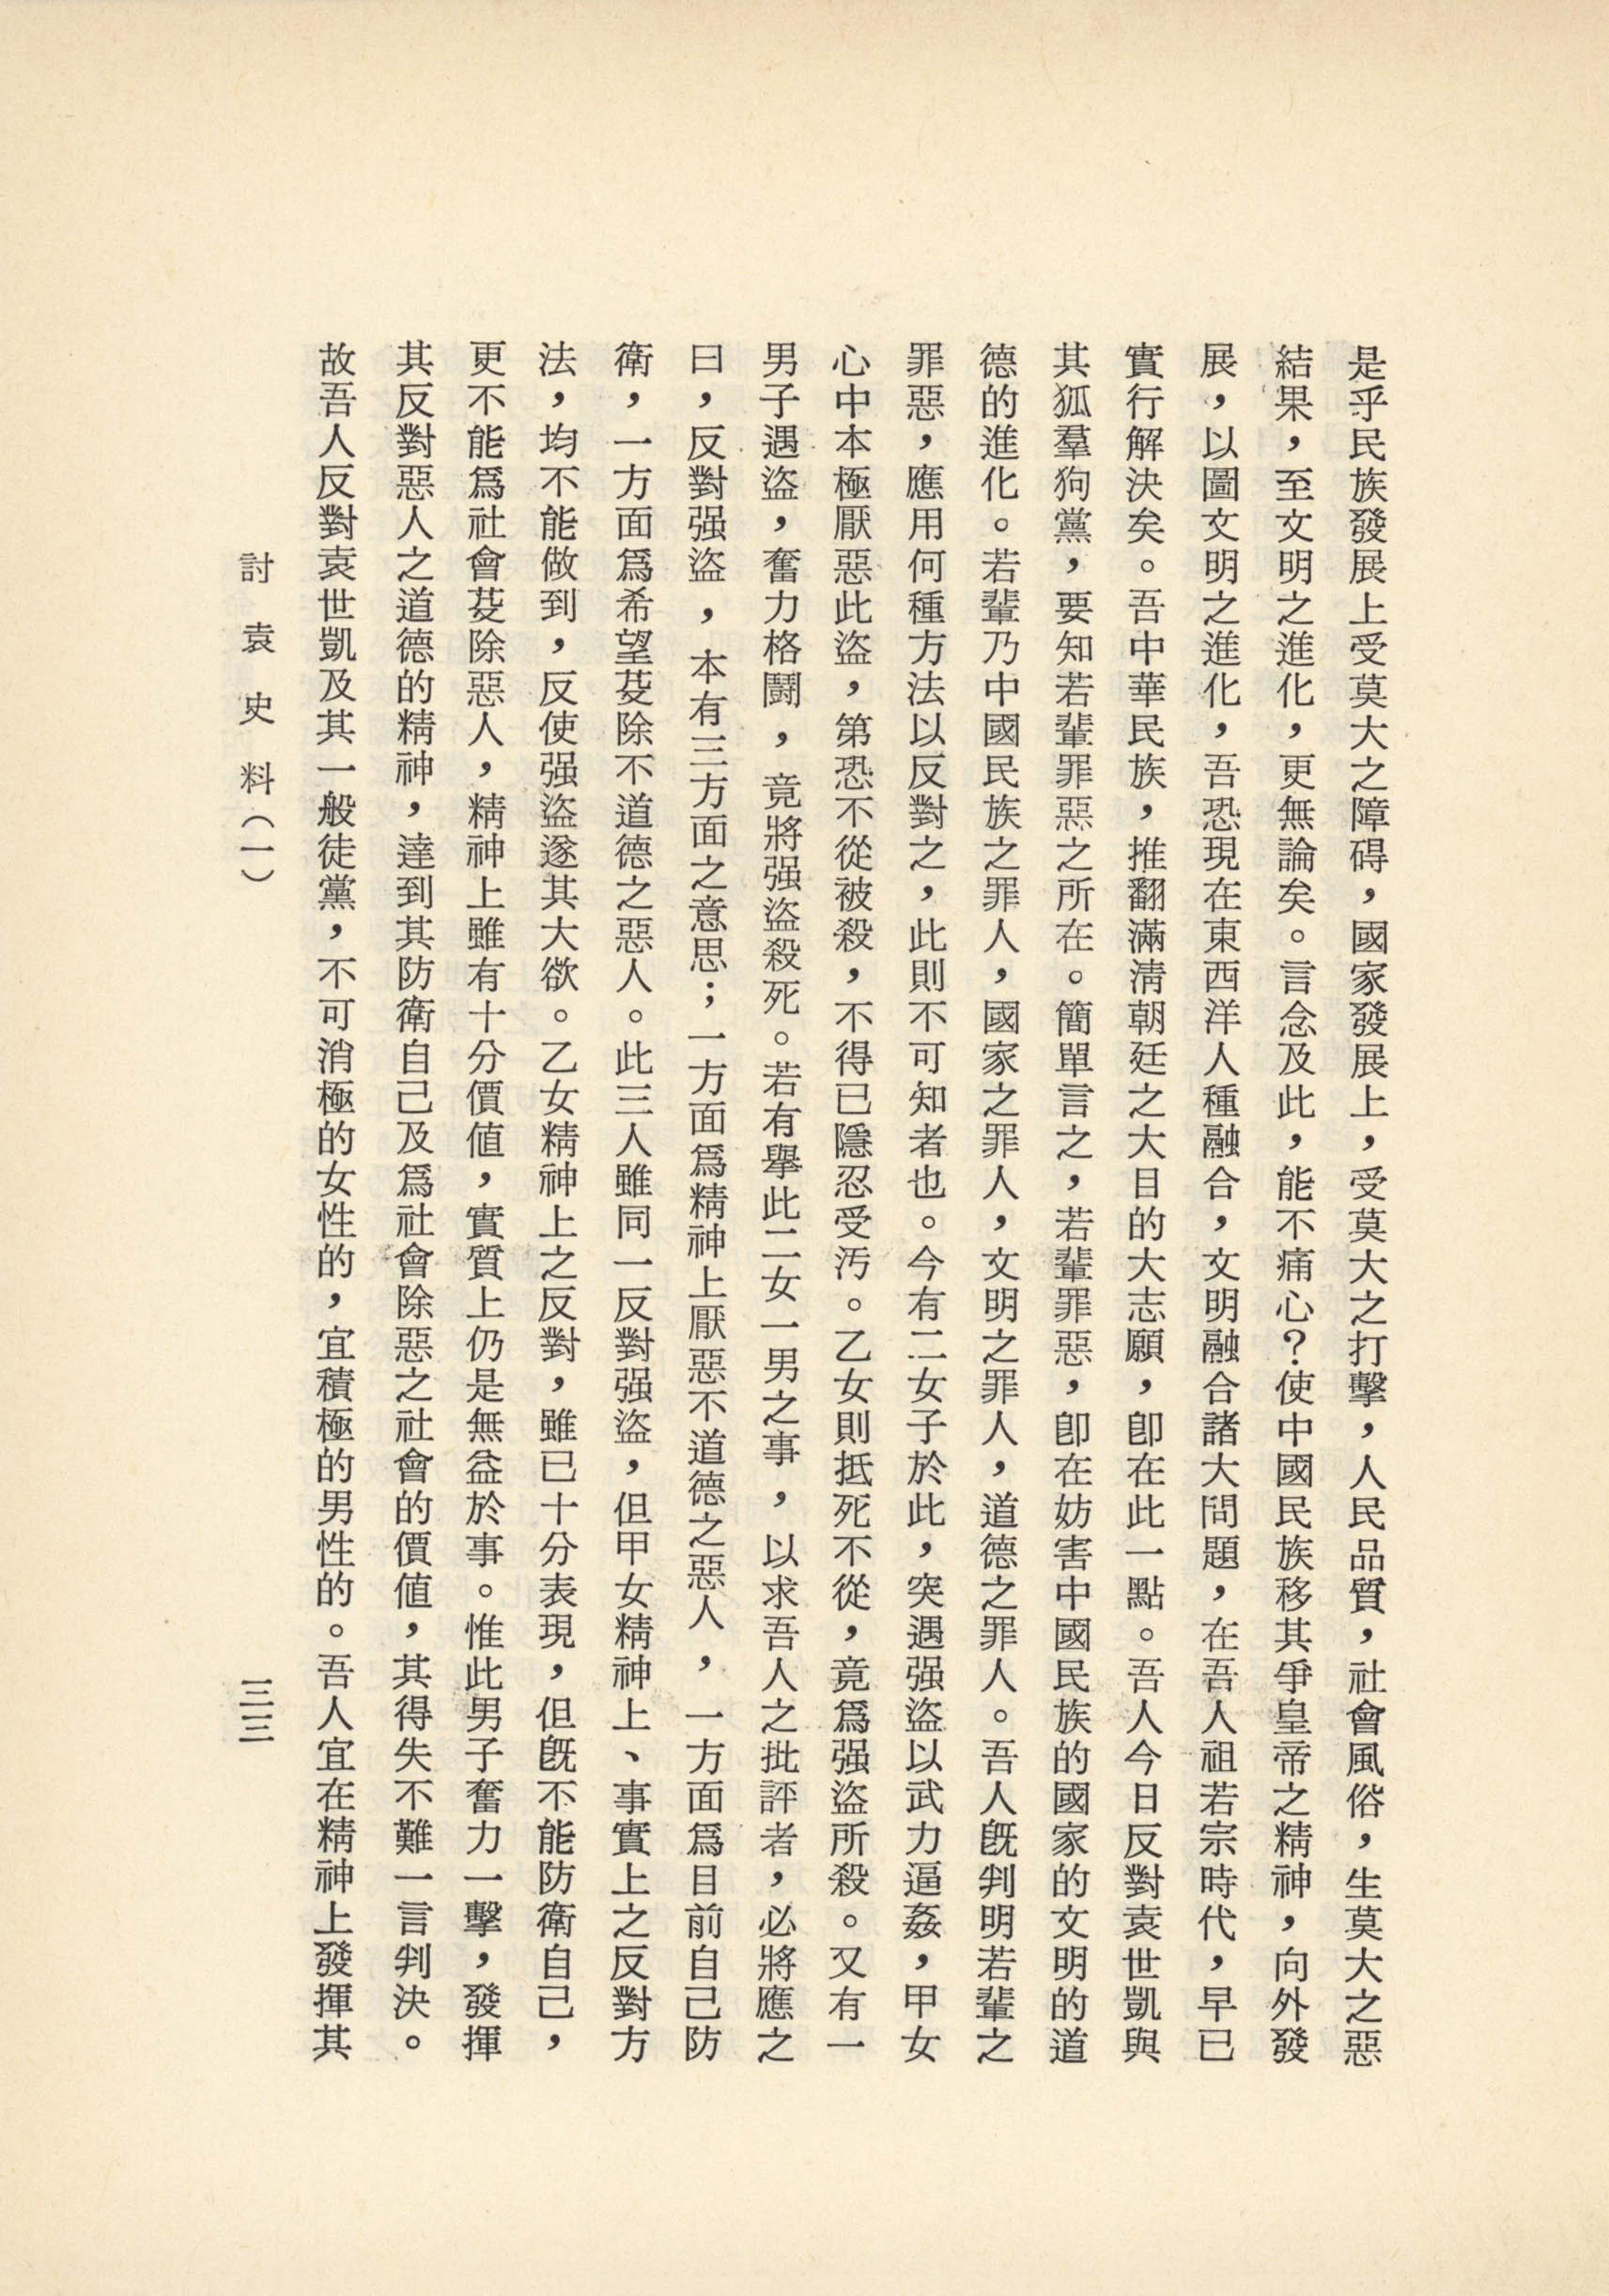 是乎民族發展上受莫大之障碍，國家發展上，受莫大之打擊，人民品質，社會風俗，生莫大之惡
結果，至文明之進化，更無論矣。言念及此，能不痛心？使中國民族移其爭皇帝之精神，向外發
展，以圖文明之進化，吾恐現在東西洋人種融合，文明融合諸大問題，在吾人祖若宗時代，早已
實行解決矣。吾中華民族，推翻滿淸朝廷之大目的大志願，卽在此一點。吾人今日反對袁世凱與
其狐羣狗黨，要知若輩罪惡之所在。簡單言之，若輩罪惡，卽在妨害中國民族的國家的文明的道
德的進化。若輩乃中國民族之罪人，國家之罪人，文明之罪人，道德之罪人。吾人旣判明若輩之
罪惡，應用何種方法以反對之，此則不可知者也。今有二女子於此，突遇强盜以武力逼姦，甲女
心中本極厭惡此盜，第恐不從被殺，不得已隱忍受汚。乙女則抵死不從，竟爲强盜所殺。又有一
男子遇盜，奮力格鬪，竟將强盜殺死。若有舉此二女一男之事，以求吾人之批評者，必將應之
曰，反對强盜，本有三方面之意思；一方面爲精神上厭惡不道德之惡人，一方面爲目前自己防
衛，一方面爲希望芟除不道德之惡人。此三人雖同一反對强盜，但甲女精神上、事實上之反對方
法，均不能做到，反使强盜遂其大欲。乙女精神上之反對，雖已十分表現，但旣不能防衛自己，
更不能爲社會芟除惡人，精神上雖有十分價值，實質上仍是無益於事。惟此男子奮力一擊，發揮
其反對惡人之道德的精神，達到其防衛自己及爲社會除惡之社會的價值，其得失不難一言判決。
故吾人反對袁世凱及其一般徒黨，不可消極的女性的，宜積極的男性的。吾人宜在精神上發揮其
討袁史料（一）
三三